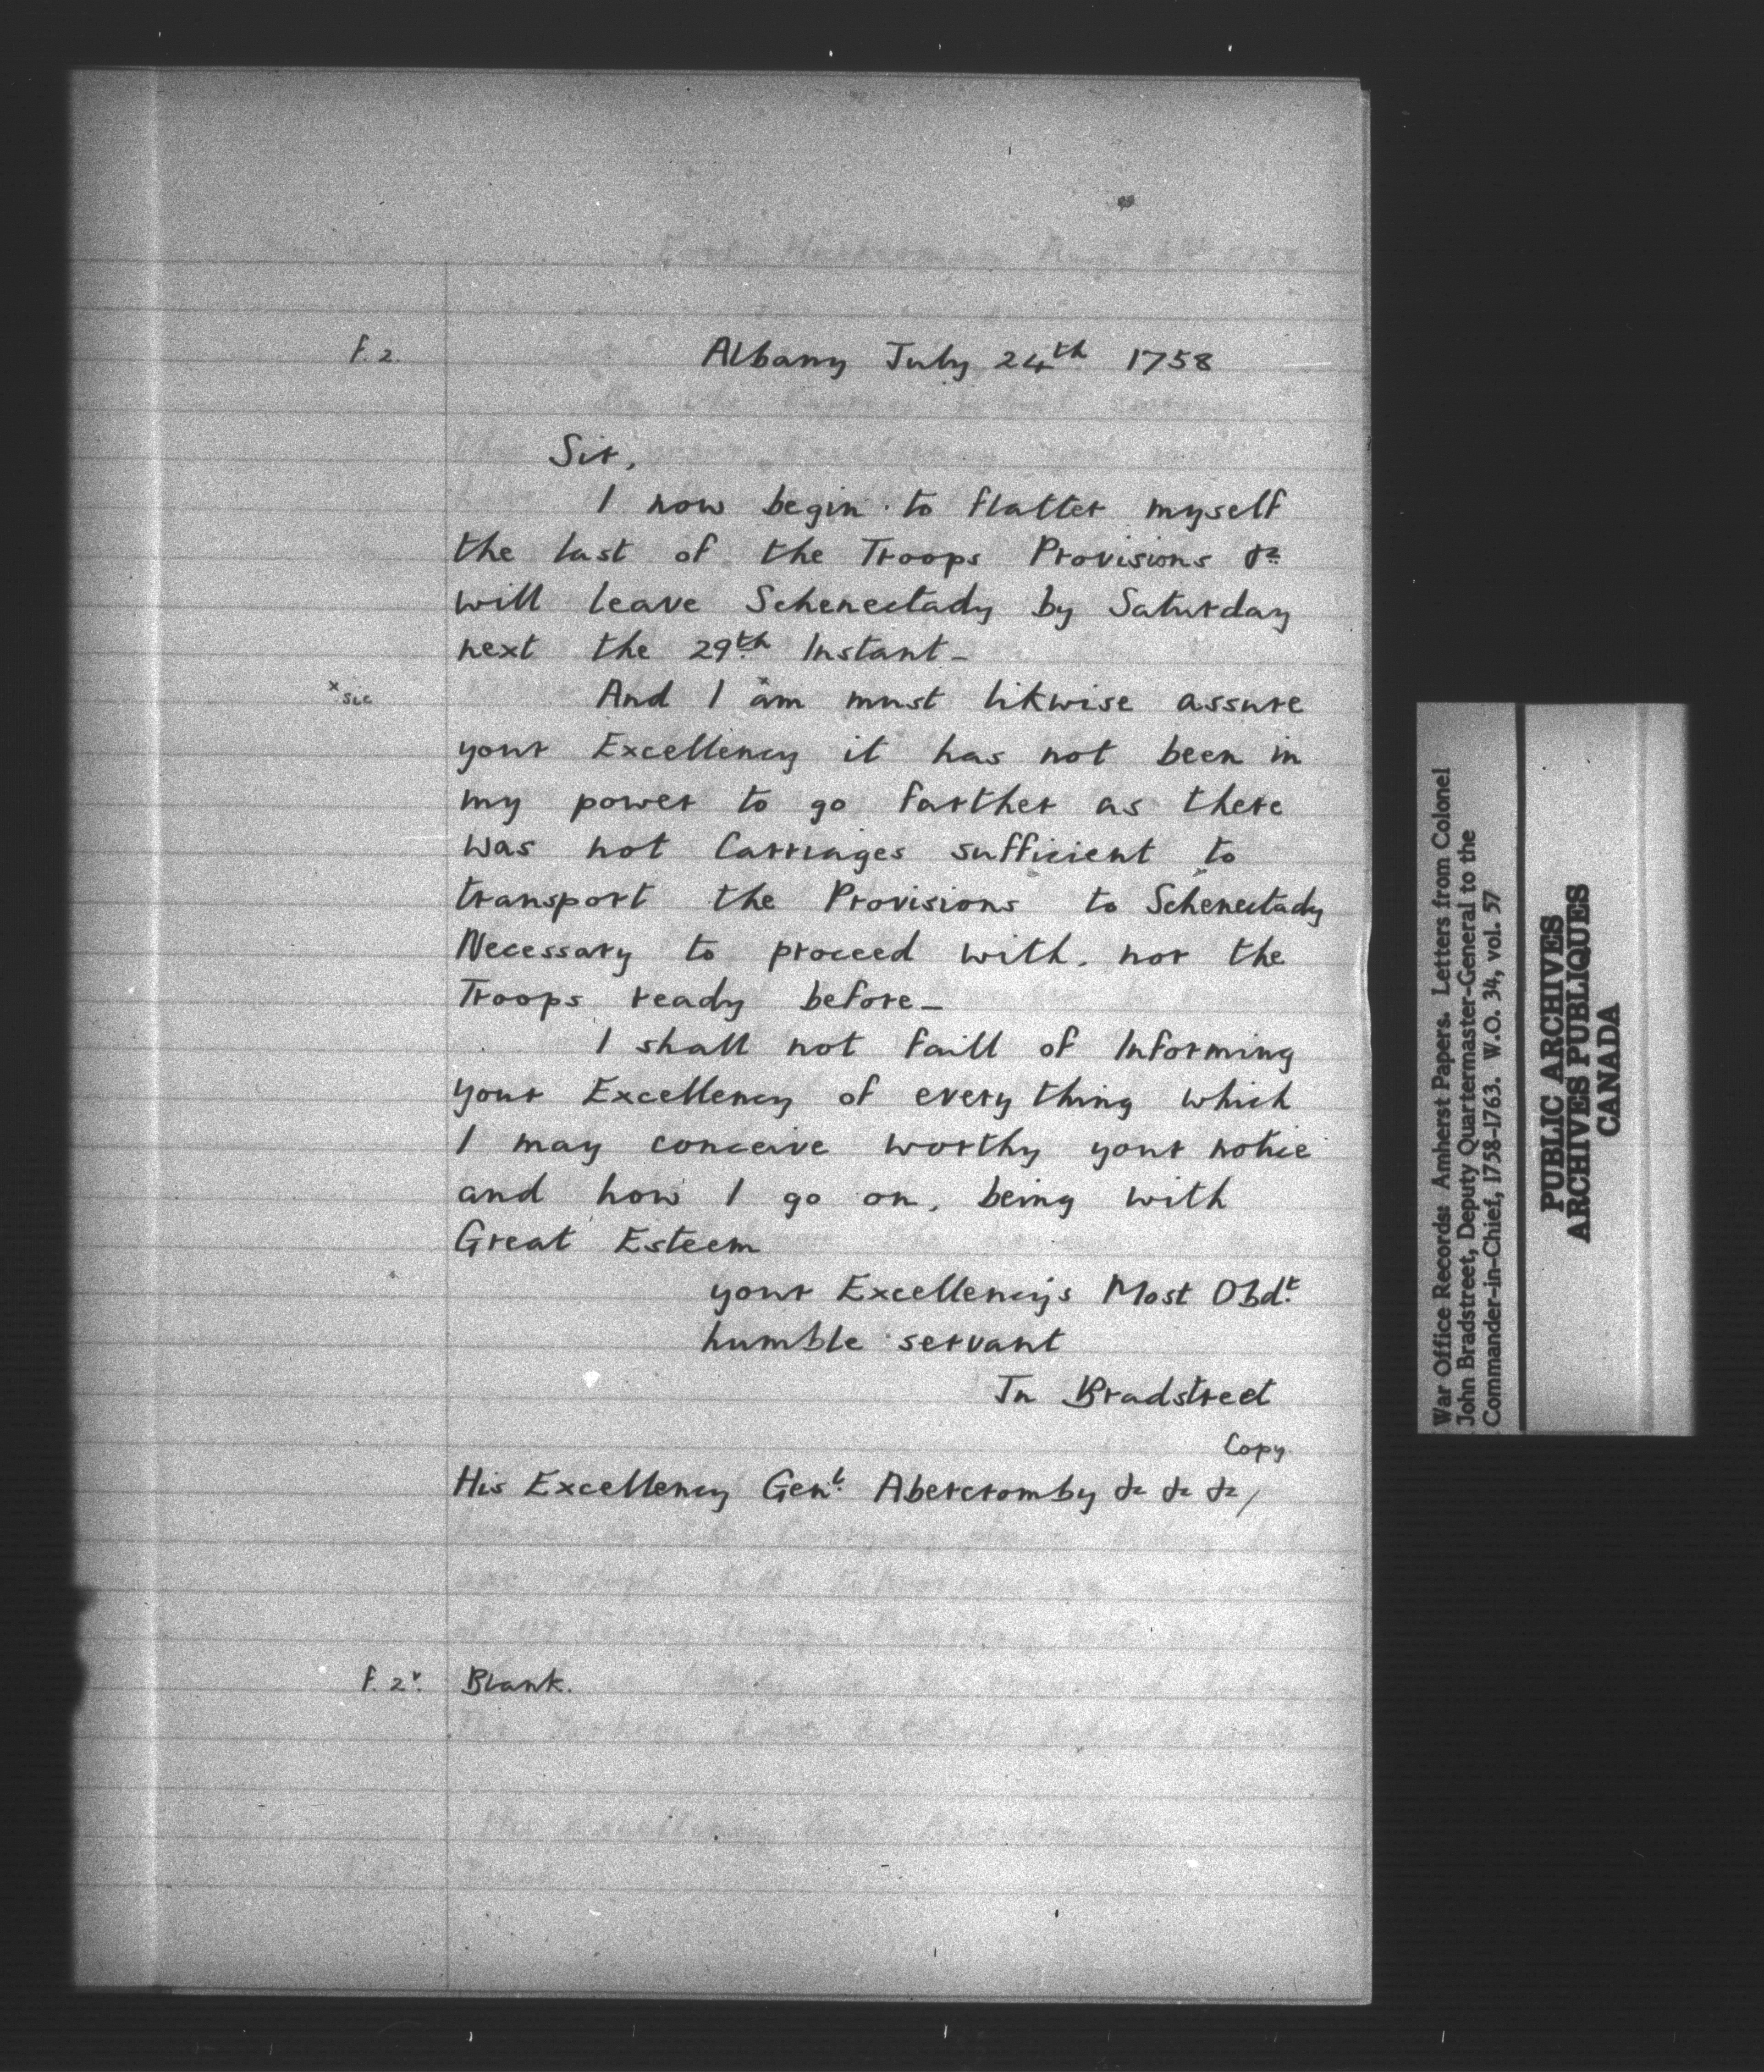 f. 2.
Albany July 24th 1758
Sir,
I now begin to flatter myself
the last of the Troops Provisions &c
will leave Schenectady by Saturday
next the 29th Instant_
x sic
And I am x must likwise assure
your Excellency it has not been in
my power to go farther as there
was not Carriages sufficient to
transport the Provisions to Schenectady
Necessary to proceed with, nor the
Troops ready before_
I shall not faill of Informing
your Excellency of every thing which
I may conceive worthy your notice
and how I go on, being with
Great Esteem
your Excellency's Most Obdt
humble servant
Jn Bradstreet
Copy
His Excellency Genl Abercromby &c &c &c/
f. 2v. Blank.
War Office Records: Amherst Papers. Letters from Colonel
John Bradstreet, Deputy Quartermaster-General to the
Commander-in-Chief, 1758-1763. W.O. 34, vol. 57
PUBLIC ARCHIVES
ARCHIVES PUBLIQUES
CANADA